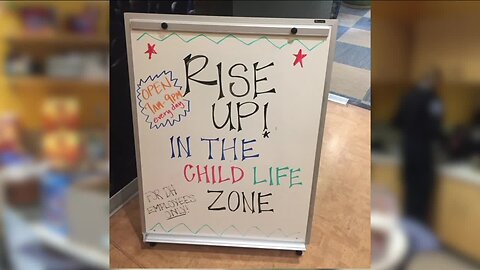 RISE
UP!
OPEN
7AM-9PM
every day
IN THE
CHILD LIFE
ZONE
FOR DH
EMPLOYEES
ONLY!